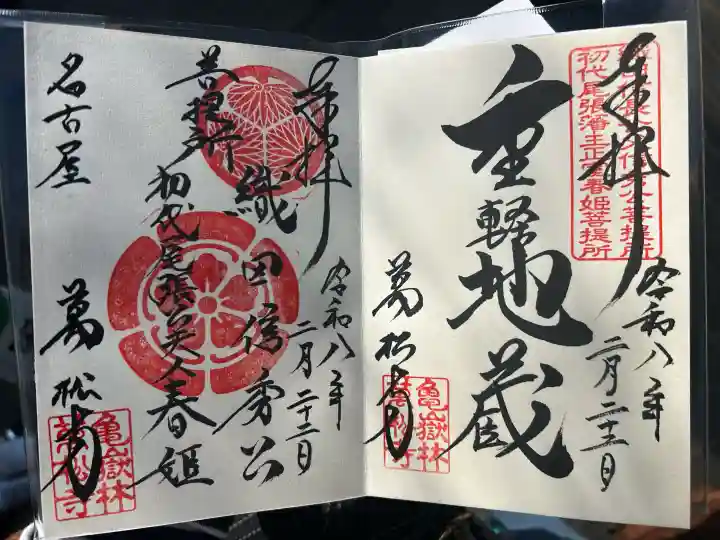 奉拝
織田信長父信秀公菩提所
初代尾張藩主正室春姫菩提所
重軽地蔵
令和八年
二月二十二日
萬松寺
亀嶽林
萬松寺
奉拝
織田信秀公
菩提所
初代尾張夫人春姫
令和八年
二月二十二日
名古屋
萬松寺
亀嶽林
萬松寺